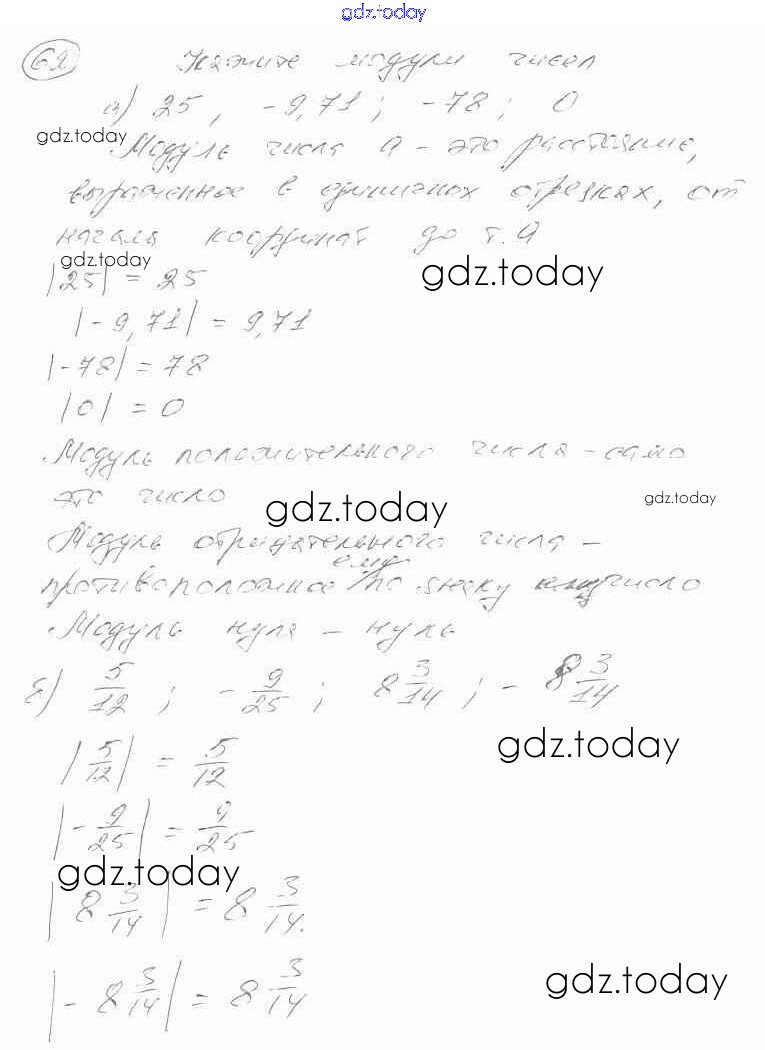 gdz.today
62 Укажите модули чисел
а) 25, -9,71; -78; 0
gdz.today
Модуль числа a - это расстояние,
выраженное в единичных отрезках, от
начала координат до т. A
gdz.today
gdz.today
|25| = 25
|-9,71| = 9,71
|-78| = 78
|0| = 0
Модуль положительного числа - само
это число
gdz.today
gdz.today
Модуль отрицательного числа -
противоположное ему по знаку число
Модуль нуля - нуль
б) 5/12; -9/25; 8 3/14; -8 3/14
gdz.today
|5/12| = 5/12
|-9/25| = 9/25
gdz.today
|8 3/14| = 8 3/14.
gdz.today
|-8 3/14| = 8 3/14